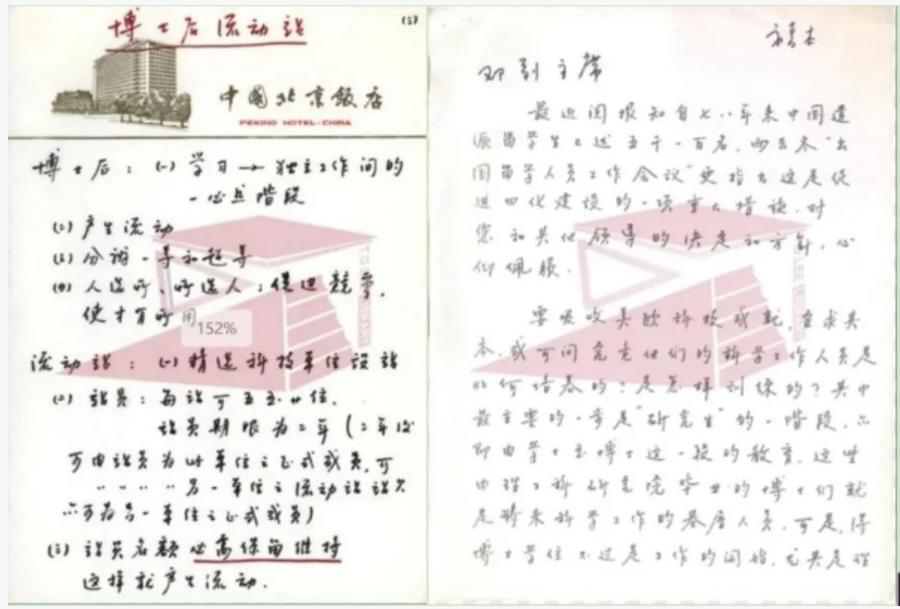 博士后流动站
(3)
中國北京飯店
PEKING HOTEL·CHINA
博士后：(一) 学习→独立工作间的
一必具階段
(二) 产生流动
(三) 分辨一等和超等
(四) 人选所、所选人；促进競争，
使才有所用
152%
流动站：(一) 精选科技单位設站
(二) 站员：每站可五至廿位．
站员期限为二年 (二年后
可由站员为此单位之正式成员，可
〃 〃 〃 〃 另一单位之流动站站员
亦可为另一单位之正式成员)
(三) 站员名额必需保留維持
这样就产生流动．
邓副主席
最近阅报知自七八年来中国遣
派留学生已达五千一百名，而去冬“出
国留学人员工作会议”更指出这是促
进四化建设的一项重大措施．对
您和其他领导的决定和方针，心
仰佩服．
要吸收美欧科技成就，直求其
本，或可问究竟他们的科学工作人员是
如何培养的？是怎样训练的？其中
最主要的一步是“研究生”的一階段，亦
即由学士至博士这一段的教育．这些
由理工科研究院毕业的博士们就
是将来科学工作的基层人员．可是，得
博士学位只不过是工作的開始，尤其是理